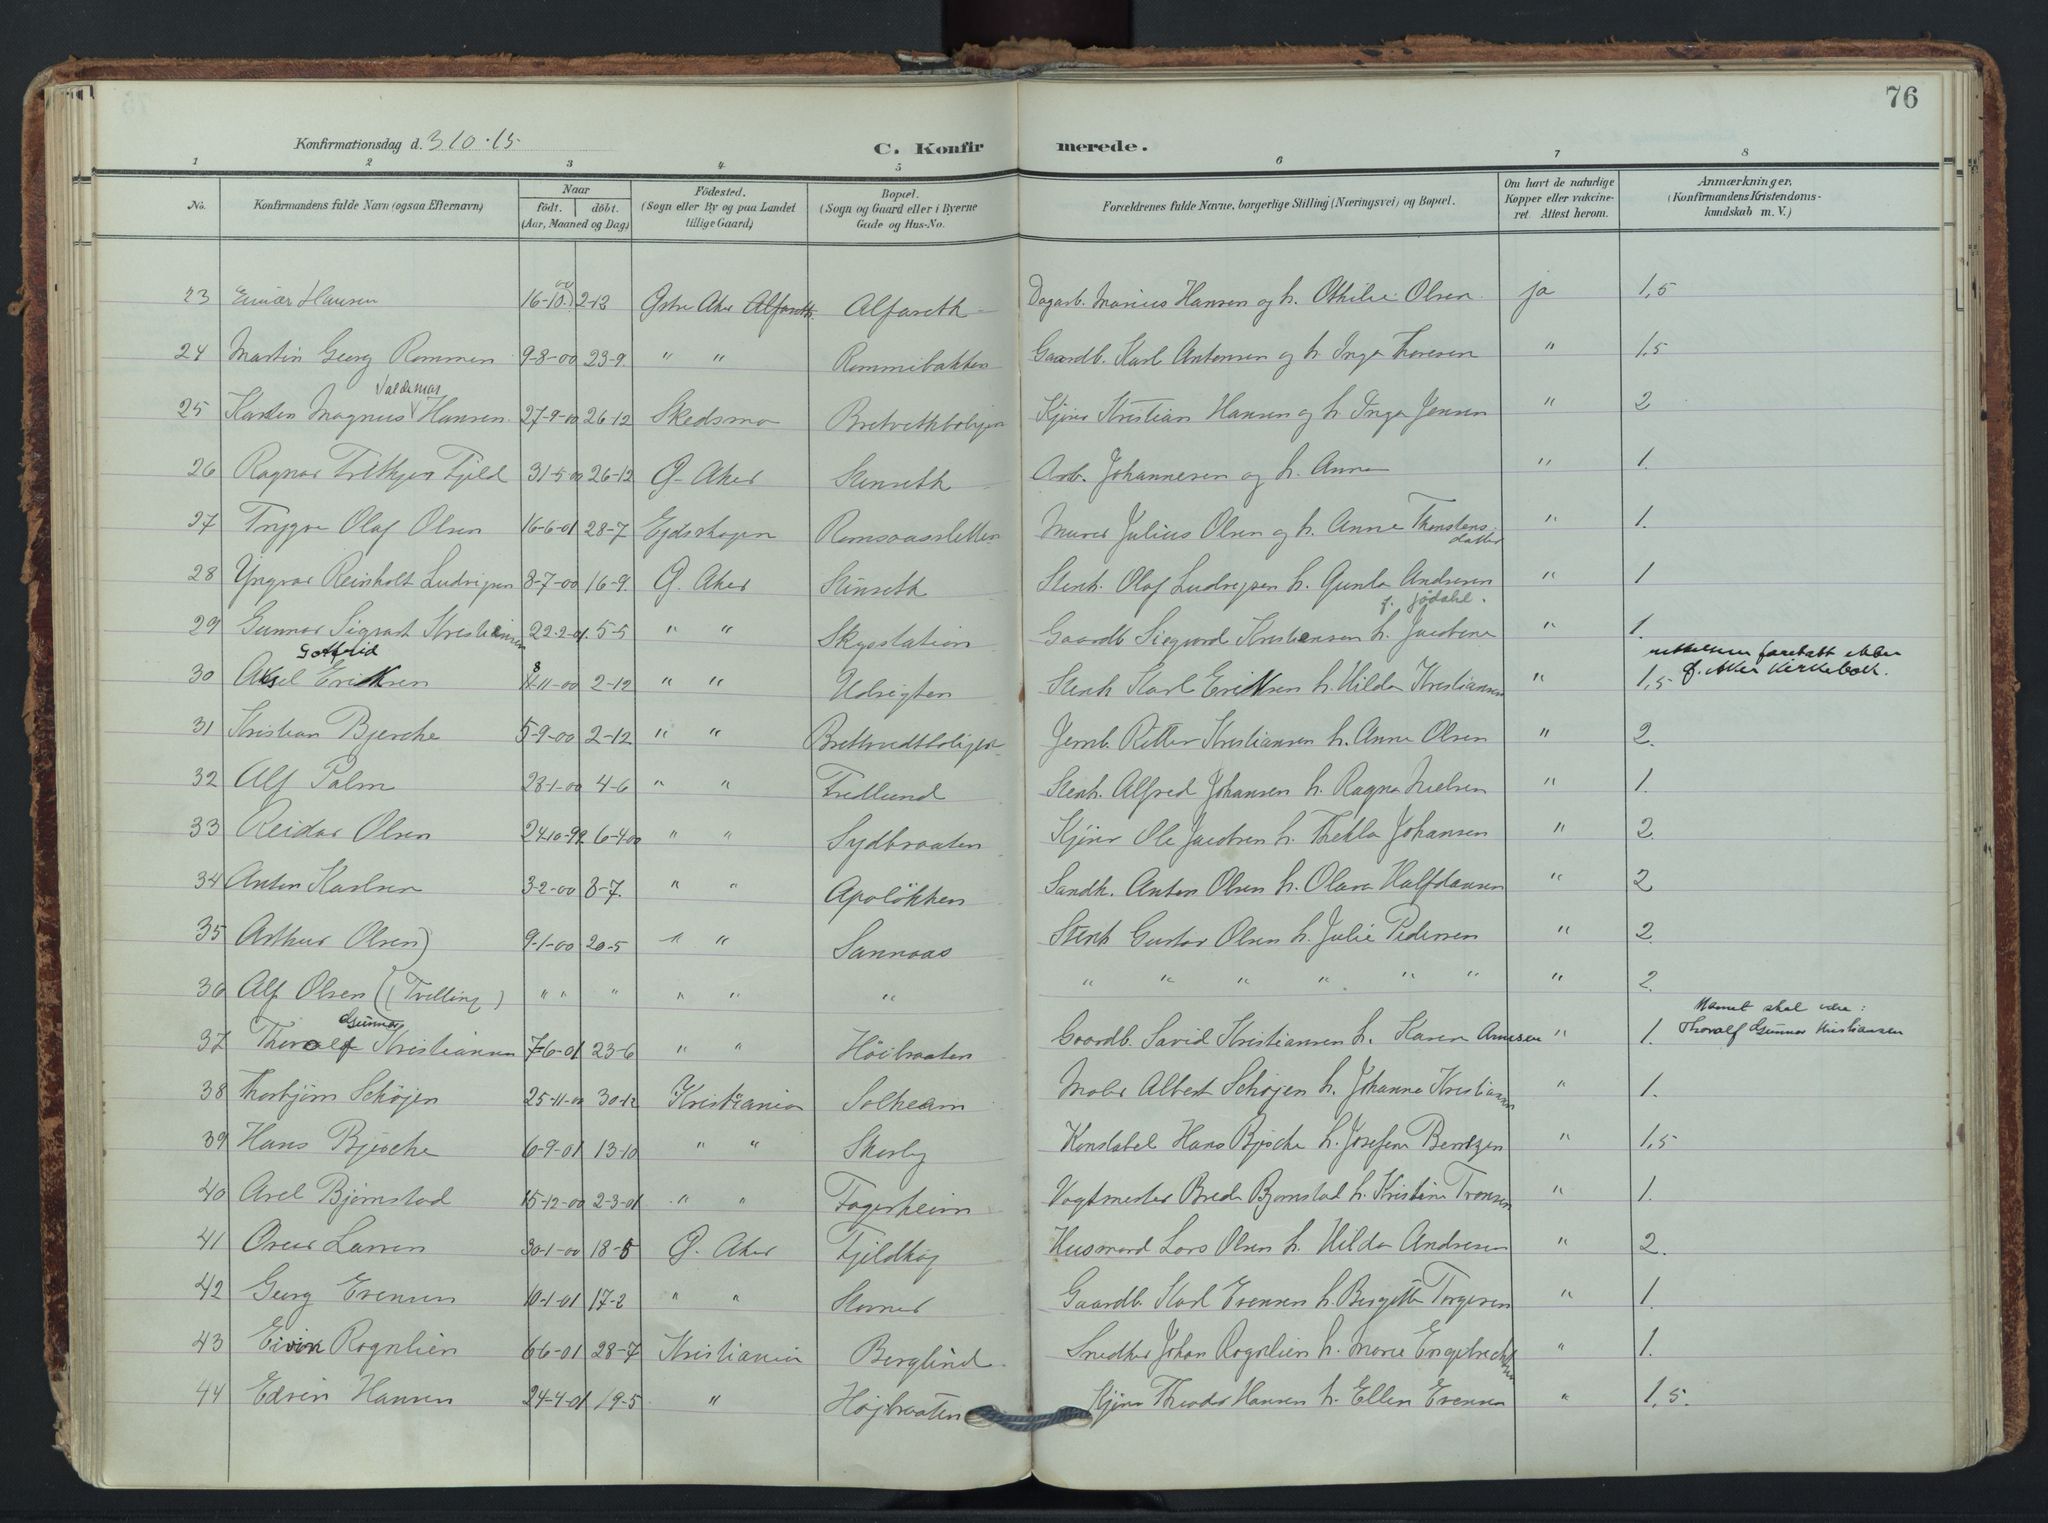 76
Konfirmationsdag d. 3 10 · 15
C. Konfirmerede.
1 2 3 4 5 6 7 8
No. Konfirmandens fulde Navn (ogsaa Efternavn) Naar født. døbt. (Aar, Maaned og Dag) Födested. (Sogn eller By og paa Landet tillige Gaard) Bopæl. (Sogn og Gaard eller i Byerne Gade og Hus-No. Forældrenes fulde Navne, borgerlige Stilling (Næringsvei) og Bopæl. Om havt de naturlige Kopper eller vakcineret. Attest herom. Anmærkninger. (Konfirmandens Kristendomskundskab m. V.)
23 Einar Hansen 16-10-00 2-12 Østre Aker Alfaseth. Alfaseth Dagarb. Marius Hansen og h. Othilie Olsen. ja 1,5
24 Martin Georg Rommen 9-8-00 23-9. " " Rommibakken Gaardb. Karl Antonsen og h. Inga Thoresen " 1,5
25 Karsten Magnus Valdemar Hansen 27-9-00 26-12 Skedsmo Bretvethboligen Kjører Kristian Hansen og h. Inga Jensen " 2
26 Ragnar Fritjov Fjeld 31-5-00 26-12 Ø. Aker Stenseth Arb. Johannesen og h. Anna " 1.
27 Trygve Olaf Olsen 16-6-01 28-7 Eidskogen Romsaassletten Murer Julius Olsen og h. Anne Thorstensdatter " 1.
28 Yngvar Reinholt Ludvigsen 8-7-00 16-9. Ø. Aker Stenseth Stenh. Olaf Ludvigsen h. Gunda Andresen " 1
29 Gunnar Sigvart Kristiansen 22-2-01. 5-5 " " Skysstation Gaardb. Siegvard Kristiansen h. Jacobine f. Jödahl. " 1.
30 Aksel Gotfrid Eriksen 8-11-00 2-12 " " Udsigten Stenh. Karl Eriksen h. Hilda Kristiansen " 1,5 rettelsen foretatt efter Ø. Aker kirkebok.
31 Kristian Bjerche 5-9-00 2-12 " " Brettvedtboligen Jernb. Petter Kristiansen h. Anne Olsen " 2.
32 Alf Palm 28-1-00 4-6 " " Fredlund Stenh. Alfred Johansen h. Ragna Nielsen " 1.
33 Reidar Olsen 24-10-99. 6-4-00 " " Sydbraaten Kjører Ole Jacobsen h. Thekla Johansen " 2.
34 Anton Karlsen 3-2-00 8-7. " " Apaløkken Sandk. Anton Olsen h. Olava Halfdansen " 2
35 Arthur Olsen) 9-1-00 20-5 " " Sannaas Stenh Gustav Olsen h. Julie Pedersen " 2.
36 Alf Olsen (Tvilling) " " " " " " " " " " " " " " 2.
37 Thoralf Gunnar Kristiansen 7-6-01 23-6 " " Höibraaten Gaardb. David Kristiansen h. Karen Arnesen " 1. Navnet skal være: Thoralf Gunnar Kristiansen
38 Thorbjørn Schøjen 25-11-00 30-12 Kristiania Solheim Maler Albert Schøjen h. Johanna Kristiansen " 1.
39 Hans Bjerche 6-9-01 13-10 " " Skovly Konstabel Hans Bjerche h. Josefine Berntzen " 1,5
40 Axel Bjørnstad 15-12-00 2-3-01 " " Fagerheim Vagtmester Brede Bjørnstad h. Kristine Tronsen " 1.
41 Oscar Larsen 30-1-00 18-5 Ø. Aker Fjeldhøj Husmand Lars Olsen h. Hilda Andresen " 2.
42 Georg Evensen 10-1-01 17-2 " " Stovner Gaardb. Karl Evensen h. Bergitte Torgersen " 1.
43 Eivin Rognlien 6-6-01 28-7 Kristiania Berglind Snedker Johan Rognlien h. Marie Engebrechtsen " 1.
44 Edvin Hansen 24-4-01 19-5 " Højbraaten Kjører Theodor Hansen h. Ellen Evensen " 1,5.